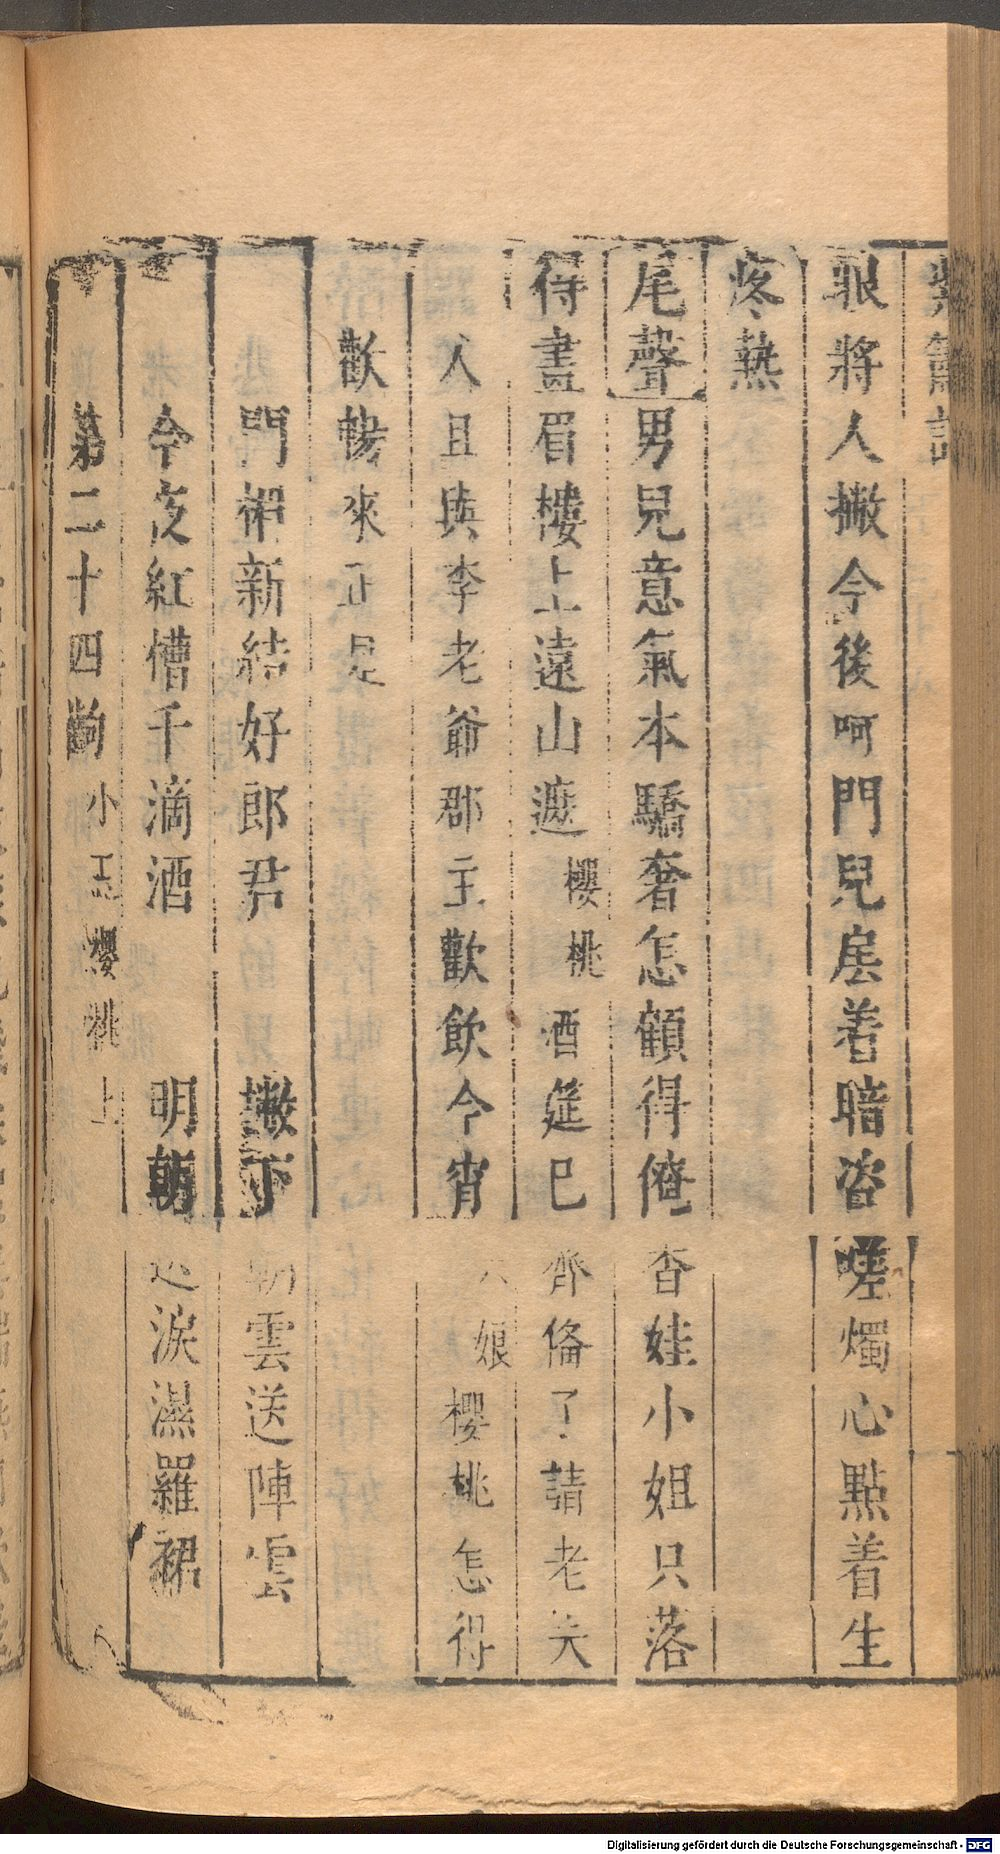 紫簫記
狠將人撇今後呵門兒扂着暗沓嗟燭心點着生
疼熱
尾聲男兒意氣本驕奢怎顧得俺香娃小姐只落
得畫眉樓上遠山遮櫻桃酒筵已齊俻了請老夫
人且與李老爺郡主歡飲今宵娘櫻桃怎得
歡暢來正是
門楣新結好郎君 撇下雲送陣雲
今夜紅槽千滴酒 明朝淚濕羅裙
第二十四齣小玉櫻桃上
Digitalisierung gefördert durch die Deutsche Forschungsgemeinschaft - DFG